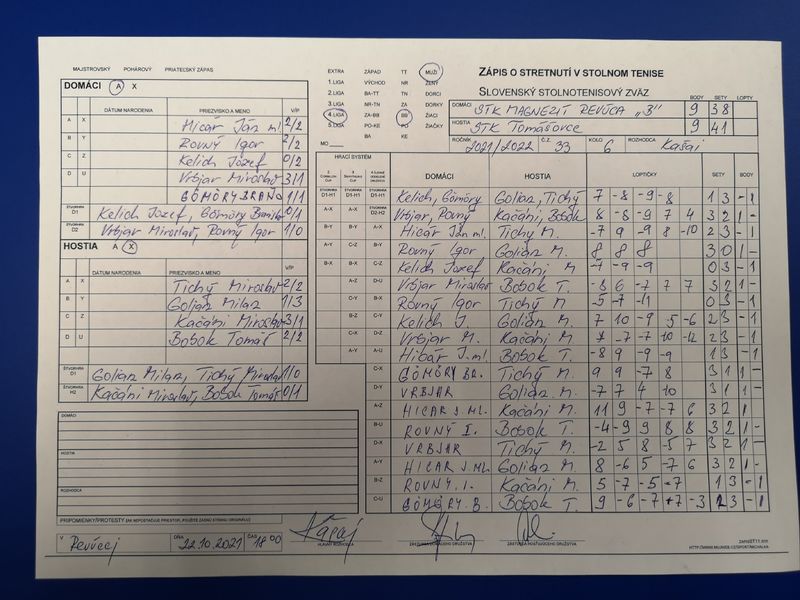 MAJSTROVSKÝ POHÁROVÝ PRIATEĽSKÝ ZÁPAS
DOMÁCI A X
DÁTUM NARODENIA PRIEZVISKO A MENO V/P
A X Hicár Ján ml. 2/2
B Y Rovný Igor 2/2
C Z Kelich Jozef 0/2
D U Vrbjar Miroslav 3/1
GÖMÖRY BRAŇO 1/1
ŠTVORHRA D1 Kelich Jozef, Gömöry Braňo 0/1
ŠTVORHRA D2 Vrbjar Miroslav, Rovný Igor 1/0
HOSTIA A X
DÁTUM NARODENIA PRIEZVISKO A MENO V/P
A X Tichý Miroslav 2/2
B Y Golian Milan 1/3
C Z Kačáni Miroslav 3/1
D U Bobok Tomáš 2/2
ŠTVORHRA D1 Golian Milan, Tichý Miroslav 1/0
ŠTVORHRA H2 Kačáni Miroslav, Bobok Tomáš 0/1
DOMÁCI
HOSTIA
ROZHODCA
PRIPOMIENKY/PROTESTY
V Revúcej DŇA 22.10.2021 ČAS 18 00
EXTRA ZÁPAD TT MUŽI
1.LIGA VÝCHOD NR ŽENY
2.LIGA BA-TT TN DORCI
3.LIGA NR-TN ZA DORKY
4.LIGA ZA-BB BB ŽIACI
5.LIGA PO-KE PO ŽIAČKY
BA KE
MO
ZÁPIS O STRETNUTÍ V STOLNOM TENISE
SLOVENSKÝ STOLNOTENISOVÝ ZVÄZ
BODY SETY LOPTY
DOMÁCI STK MAGNEZIT REVÚCA „B" 9 38
HOSTIA STK Tomášovce 9 41
ROČNÍK 2021/2022 Č.Z. 33 KOLO 6 ROZHODCA Kašaj
HRACÍ SYSTÉM DOMÁCI HOSTIA LOPTIČKY SETY BODY
D1-H1 D1-H1 D1-H1 Kelich, Gömöry Golian, Tichý 7 -8 -9 -8 1 3 - 1
A-X A-X D2-H2 Vrbjar, Rovný Kačáni, Bobok 8 -8 -9 7 4 3 2 1 -
B-Y B-Y A-X Hicár Ján ml. Tichý M. -7 9 -9 8 -10 2 3 - 1
A-Y C-Z B-Y Rovný Igor Golian M. 8 8 8 3 0 1 -
B-X B-X C-Z Kelich Jozef Kačáni M -7 -9 -9 0 3 - 1
A-Z D-U Vrbjar Miroslav Bobok T. -8 6 -7 7 7 3 2 1 -
C-Y B-X Rovný Igor Tichý M -5 -7 -11 0 3 - 1
B-Z C-Y Kelich J. Golian M. 7 10 -9 -5 -6 2 3 - 1
C-X D-Z Vrbjar M. Kačáni M -7 -7 10 -12 2 3 - 1
A-Y A-U Hibár J. ml. Bobok T. -8 9 -9 -9 1 3 - 1
C-X GÖMÖRY BR. Tichý M. 9 9 -7 8 3 1 1 -
D-Y VRBJAR Golian M. -7 7 4 10 3 1 1 -
A-Z HICAR J. ML. Kačáni M. 11 9 -7 -7 6 3 2 1
B-U ROVNÝ I. Bobok T. -4 -9 9 8 8 3 2 1 -
D-X VRBJAR Tichý M. -2 5 8 -5 7 3 2 1 -
A-Y HICAR J. ML. Golian M. 8 -6 5 -7 6 3 2 1 -
B-Z ROVNÝ. I. Kačáni M 5 -7 -5 -7 1 3 - 1
C-U GÖMÖRY. B. Bobok T. 9 -6 -7 +7 -3 2 3 - 1
Kašaj
HLAVNÝ ROZHODCA ZÁSTUPCA DOMÁCEHO DRUŽSTVA ZÁSTUPCA HOSŤUJÚCEHO DRUŽSTVA